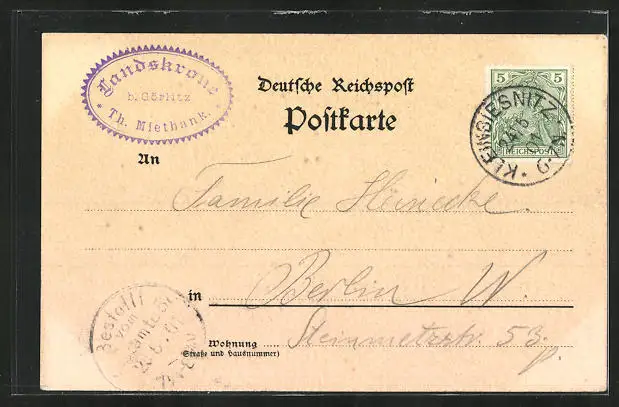 Landskrone
b. Görlitz
* Th. Miethank. *
Deutsche Reichspost
Postkarte
5 5
REICHSPOST
KLEINBIESNITZ
An
Familie Heinecke
in Berlin W.
Wohnung
(Straße und Hausnummer)
Steinmetzstr. 53.
Bestellt
vom
Postamte